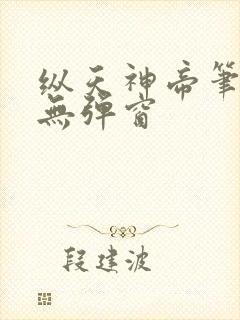 纵天神帝筆
無彈窗
段建波